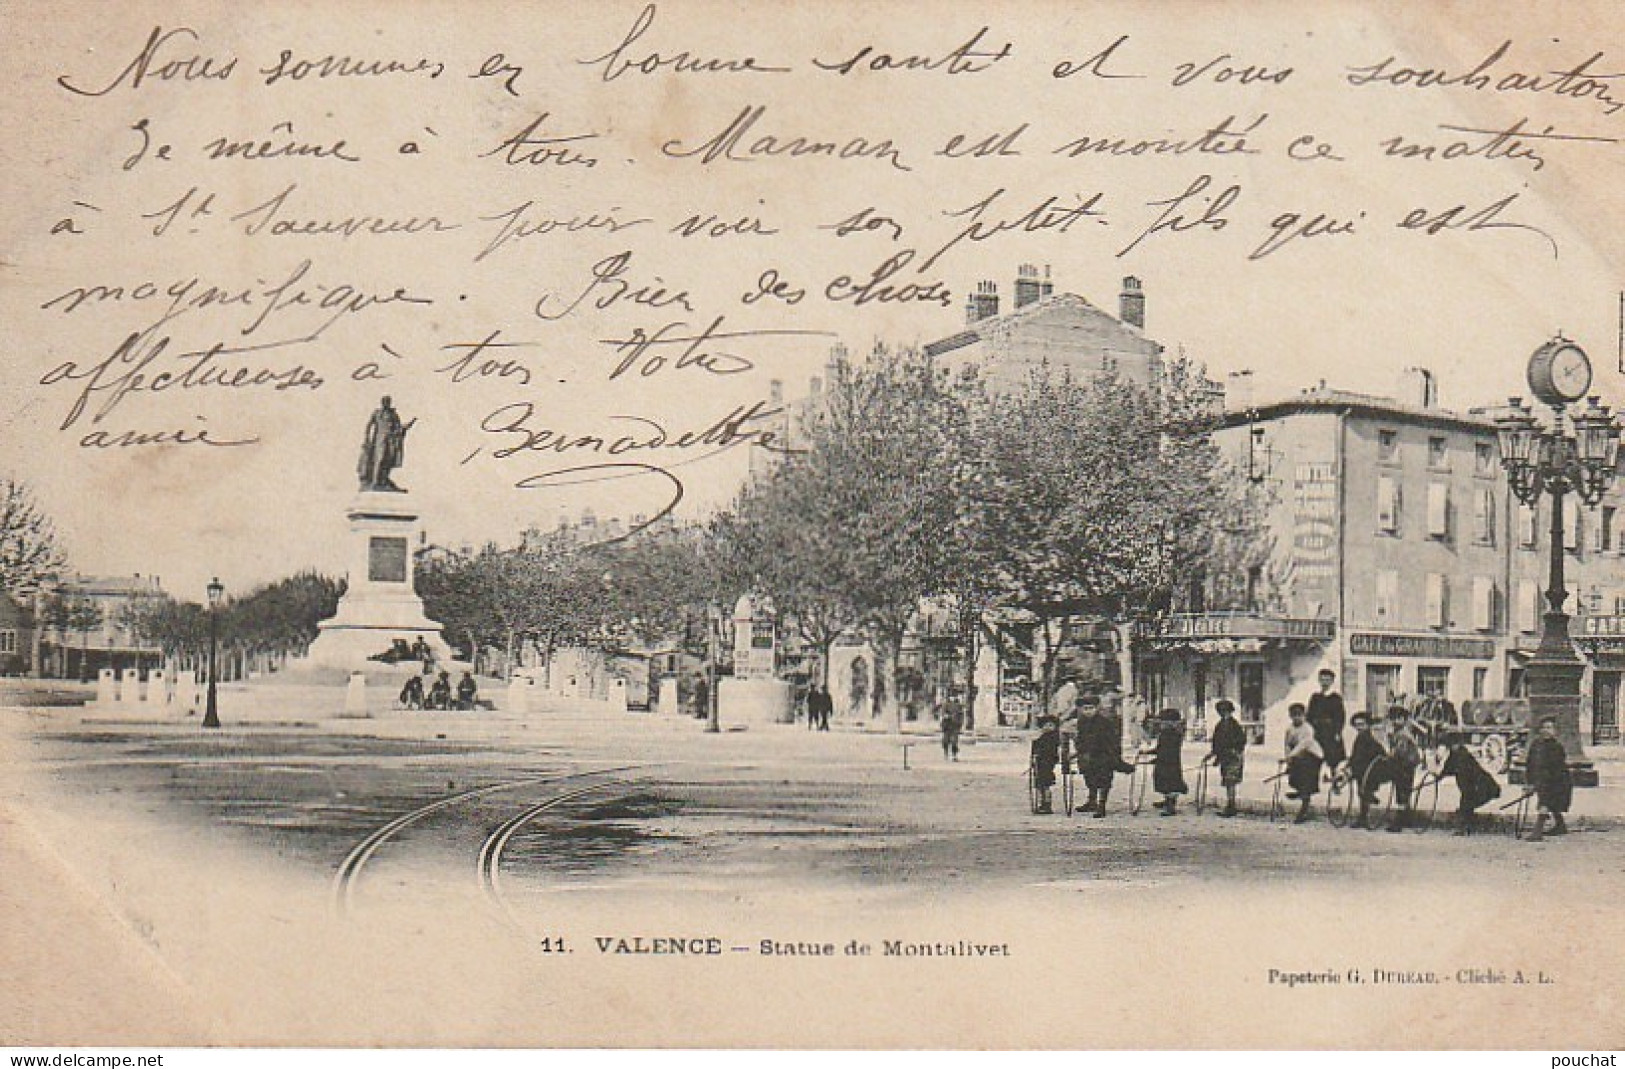 Nous sommes en bonne santé et vous souhaitons
de même à tous. Maman est montée ce matin
à St Sauveur pour voir son petit-fils qui est
magnifique. Bien des choses
affectueuses à tous. Votre
amie Bernadette
CAFÉ
11. VALENCE — Statue de Montalivet
Papeterie G. DUREAU. - Cliché A. L.
www.delcampe.net
pouchat